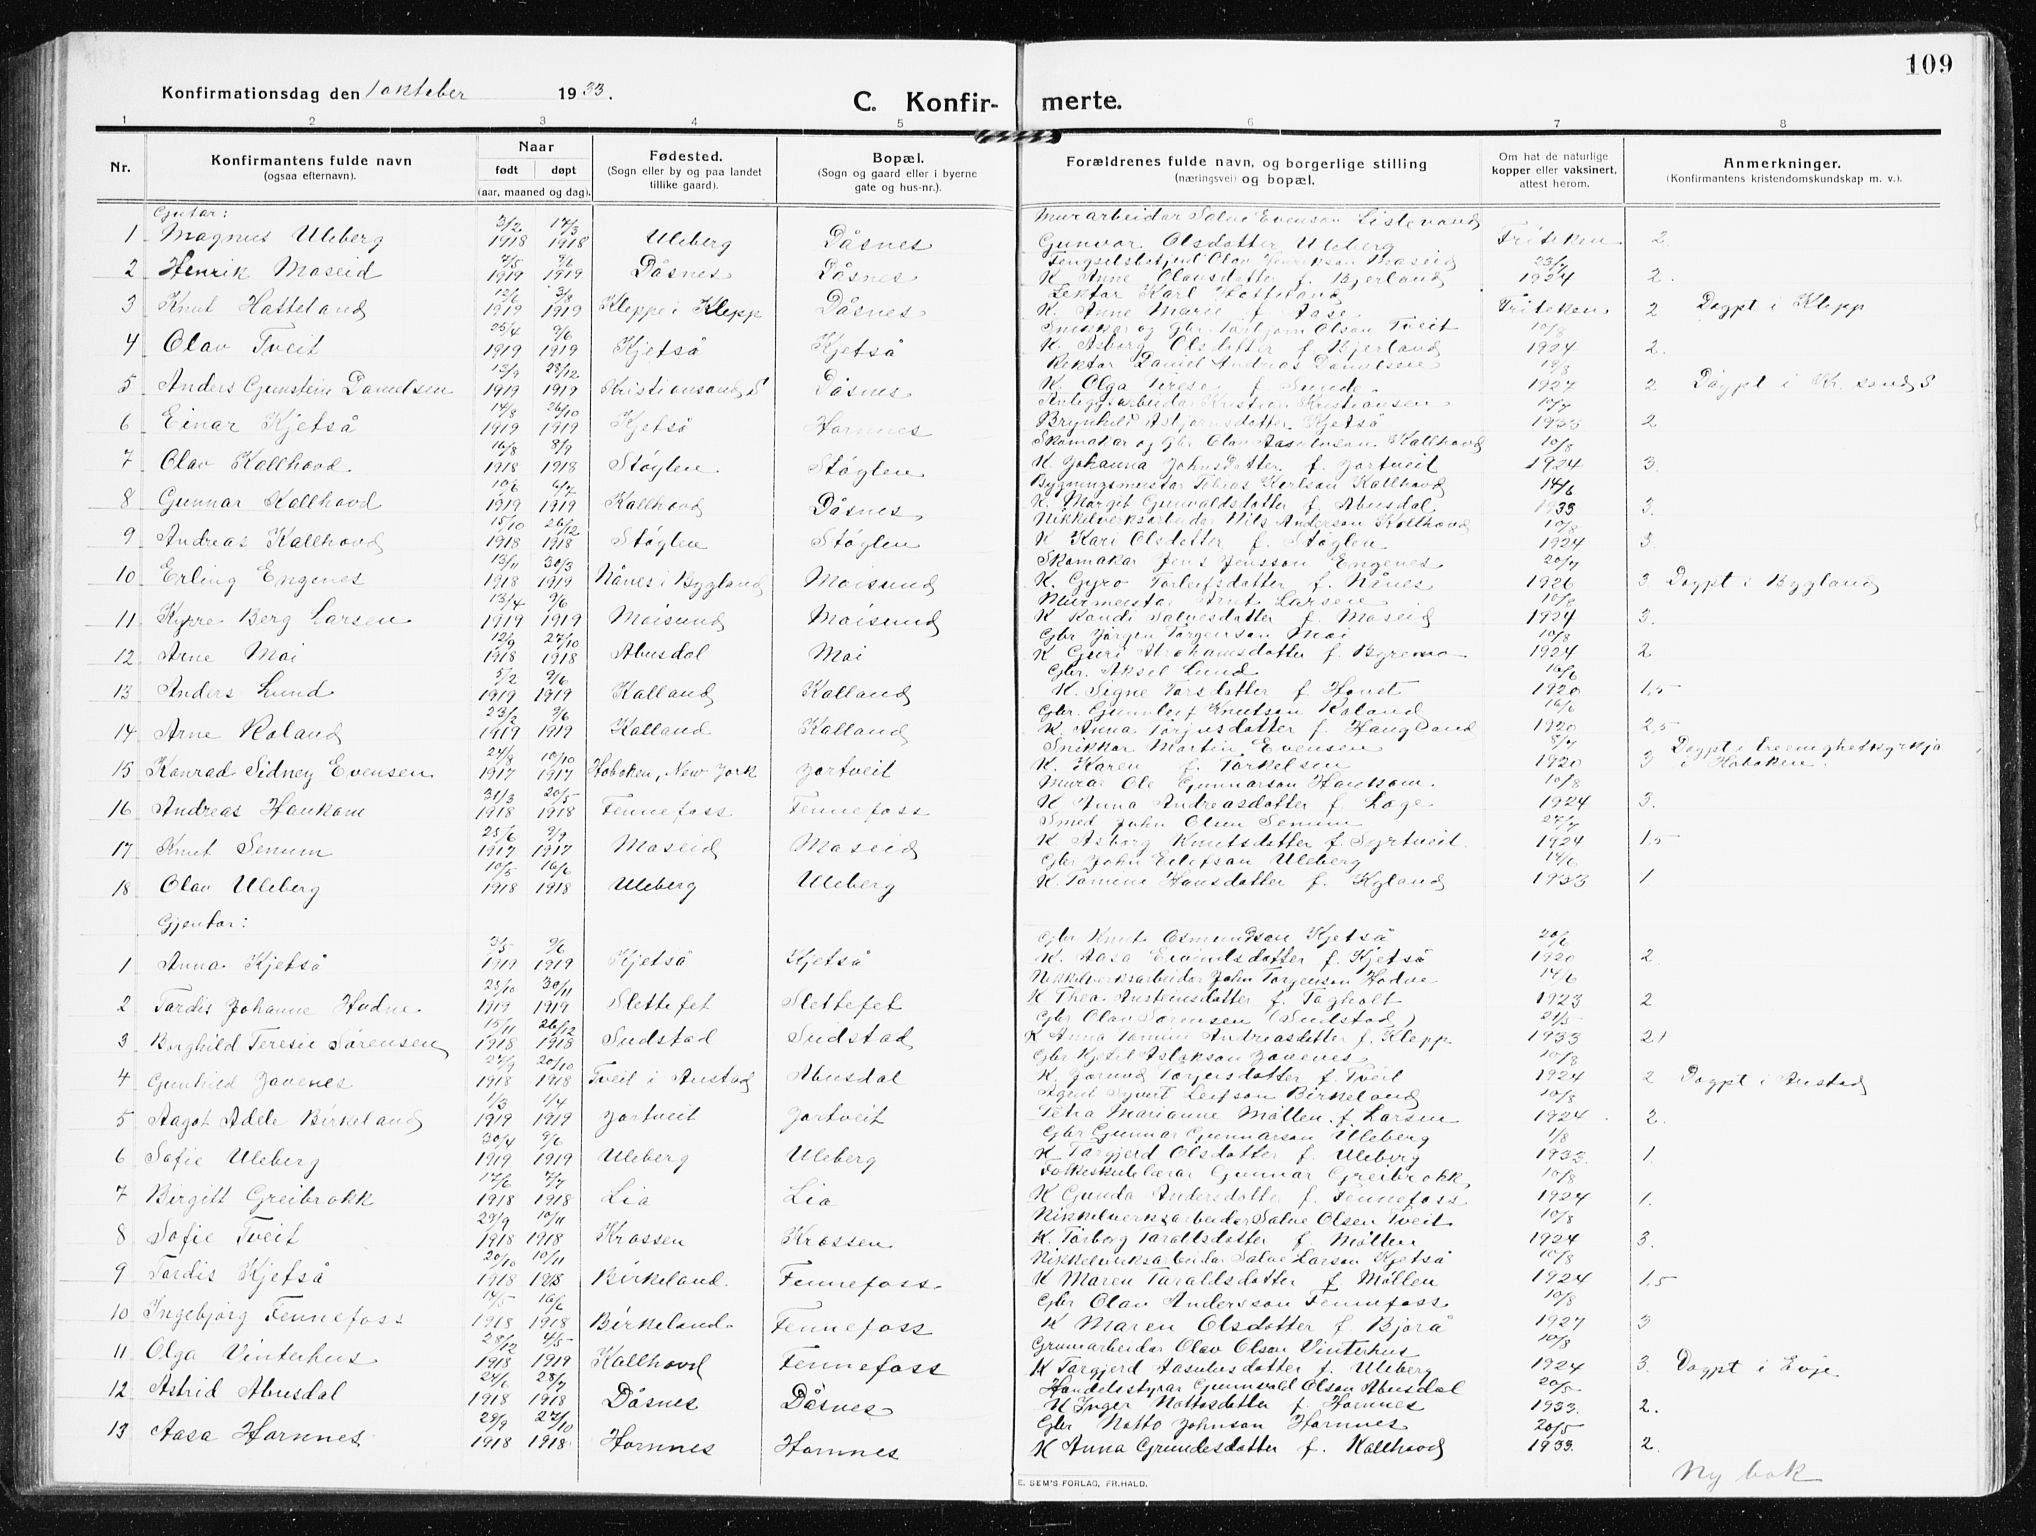 109
Konfirmationsdag den 1 oktober 1933.
C. Konfir- merte.
1 2 3 4 5 6 7 8
Nr. Konfirmantens fulde navn (ogsaa efternavn). Naar født døpt (aar, maaned og dag). Fødested. (Sogn eller by og paa landet tillike gaard). Bopæl. (Sogn og gaard eller i byerne gate og hus-nr.). Forældrenes fulde navn, og borgerlige stilling (næringsvei) og bopæl. Om hat de naturlige kopper eller vaksinert, attest herom. Anmerkninger. (Konfirmantens kristendomskundskap m. v.).
Gutar:
1 Magnus Uleberg 3/2 1918 17/3 1918 Uleberg Dåsnes Murarbeider Salve Evenson Listevand Gunvor Olsdotter Uleberg Friteken 2.
2 Henrik Moseid 4/5 1919 9/6 1919 Dåsnes Dåsnes Olav Henrikson Moseid K. Anne Olavsdotter f. Bjerland 23/7 1924 2.
3 Knut Hatteland 12/6 1919 3/8 1919 Kleppe i Klepp Dåsnes Lektor Karl Hatteland K. Anne Marie f. Aase Friteken 2 Døypt i Klepp
4 Olav Tveit 25/4 1919 9/6 1919 Kjetså Kjetså Snikkar og Gbr. Torbjørn Olson Tveit K. Asborg Olsdotter f. Bjerland 10/8 1924 2.
5 Anders Gunstein Danielsen 13/9 1919 28/12 1919 Kristiansand S Dåsnes Rektor Daniel Andreas Danielsen K. Olga Terese f. Sunde 19/8 1927 2 Døypt i Kr.sand S
6 Einar Kjetså 14/8 1919 26/10 1919 Kjetså Hornnes Anleggsarbeider Kristian Kristiansen Brynhild Asbjørnsdotter Kjetså 10/7 1933 2
7 Olav Kallhovd 16/8 1918 8/9 1918 Støylen Støylen Skomakar og Gbr Olav Aasulvson Kallhovd K. Johanna Johnsdotter f. Jortveit 10/8 1924 3.
8 Gunnar Kallhovd 10/6 1919 6/7 1919 Kallhovd Dåsnes Bygningsmeistar Tobias Karlson Kallhovd K. Margit Gunvaldsdotter f. Abusdal 14/6 1933 3.
9 Andreas Kallhovd 15/10 1918 26/12 1918 Støylen Støylen Nikkelverksarbeider Nils Anderson Kallhovd K. Kari Olsdotter f. Støylen 10/8 1924 3.
10 Erling Engenes 13/11 1918 30/3 1919 Nånes i Bygland Moisund Skomakar Jens Jensson Engenes K. Gyro Torleifsdotter f. Nånes 20/7 1926 3 Døypt i Bygland
11 Kyrre Berg Larsen 13/4 1919 9/6 1919 Moisund Moisund Murmeistar Arnt Larsen K Randi Salvesdotter f. Moseid 10/8 1924 3.
12 Arne Moi 12/9 1918 27/10 1918 Abusdal Moi Gbr Jørgen Torgenson Moi K Guri Abrahamsdotter f. Byremo 10/8 1924 2
13 Anders Lund 5/2 1919 9/6 1919 Kalland Kalland Gbr. Aksel Lund K. Signe Torsdotter f. Honst 16/6 1920 1,5
14 Arne Roland 23/2 1919 9/6 1919 Kalland Kalland Gbr. Gunnleif Knutson Roland K. Anna Torjusdotter f. Haugland 16/6 1920 2,5
15 Konrad Sidney Evensen 24/8 1917 10/10 1917 Hoboken, New York Jortveit Snikkar Martin Evensen K. Karen f. Torkelsen 8/7 1920 3 Døypt i treenighetskyrkja i Hoboken.
16 Andreas Haukom 31/3 1918 20/5 1918 Fennefoss Fennefoss Murar Ole Gunnarson Haukom. K Anna Andreasdotter f. Lage 10/8 1924 3.
17 Knut Senum 25/6 1917 9/9 1917 Moseid Moseid Smed John Olsen Senum K Asborg Knutsdotter f. Syrtveit. 27/7 1924 1,5
18 Olav Uleberg 10/5 1918 16/6 1918 Uleberg Uleberg Gbr John Eilefson Uleberg K. Tomine Hansdotter f. Kyland 14/6 1933 1
Gjentor:
1 Anna Kjetså 3/5 1919 9/6 1919 Kjetså Kjetså Gbr Knut Osmundson Kjetså K. Aasa Eivindsdotter f. Kjetså 20/6 1920 2.
2 Tordis Johanne Hodne 23/10 1919 30/11 1919 Slettefet Slettefet Nikkelverksarbeider John Torgenson Hodne K Thea Austeinsdotter f. Fagholt 14/6 1923 2
3 Borghild Teresie Sørensen 15/11 1918 26/12 1918 Sudstad Sudstad Gbr Olav Sørensen (Sudstad) K Anna Tomine Andreasdotter f. Klepp 21/5 1933 2
4 Gunhild Jovenes 27/9 1918 20/10 1918 Tveit i Austad Abusdal Gbr Kjetil Aslakson Jovenes K. Jorund Torjusdotter f. Tveit 10/8 1924 2 Døypt i Austad
5 Aagot Adele Birkeland 1/3 1919 1/4 1919 Jortveit Jortveit Agent Syvert Leifson Birkeland Petra Marianne Møllen f. Larsen 10/8 1924 2.
6 Sofie Uleberg 30/4 1919 9/6 1919 Uleberg Uleberg Gbr Gunnar Gunnarson Uleberg K Torgjerd Olsdotter f. Uleberg 1/8 1933. 1.
7 Birgitt Greibrokk 17/6 1918 7/7 1918 Lia Lia Folkeskulelærar Gunnar Greibrokk K Gunda Andersdotter f. Fennefoss 10/8 1924 1.
8 Sofie Tveit 29/9 1918 10/11 1918 Krossen Krossen Nikkelverksarbeider Salve Olsen Tveit K. Torborg Taraldsdotter f. Møllen 10/8 1924 3.
9 Tordis Kjetså 20/10 1918 10/11 1918 Birkeland. Fennefoss Nikkelverksarbeider Salve Larson Kjetså K Maren Taraldsdotter f. Møllen 10/8 1924 1,5
10 Ingebjørg Fennefoss 14/5 1918 16/6 1918 Birkeland Fennefoss Gbr Olav Andersson Fennefoss K Maren Olsdotter f Bjorå 10/8 1927 3
11 Olga Vinterhus 28/12 1918 4/5 1919 Kallhovd Fennefoss Gruvarbeider Olav Olson Vinterhus K Torgjerd Aasulvsdotter f. Uleberg 10/8 1924 3. Døypt i Evje
12 Astrid Abusdal 24/6 1918 28/7 1918 Dåsnes Dåsnes Handelsstyrar Gunnvald Olson Abusdal K Inger Nottosdotter f. Hornnes 20/5 1933. 2.
13 Aasa Hornnes 29/9 1918 27/10 1918 Hornnes Hornnes Gbr Notto Johnson Hornnes K Anna Grundesdotter f. Kallhovd 20/5 1933. 2.
Ny bok
E. SEM'S FORLAG, FR.HALD.